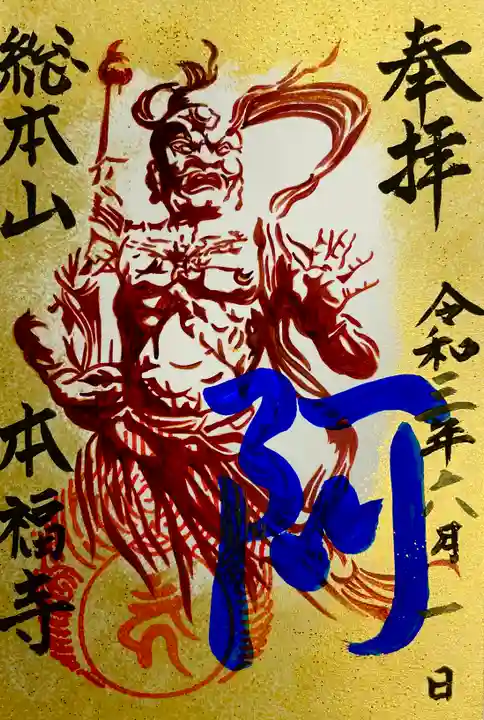 奉拝
令和三年六月一日
阿
総本山
本福寺